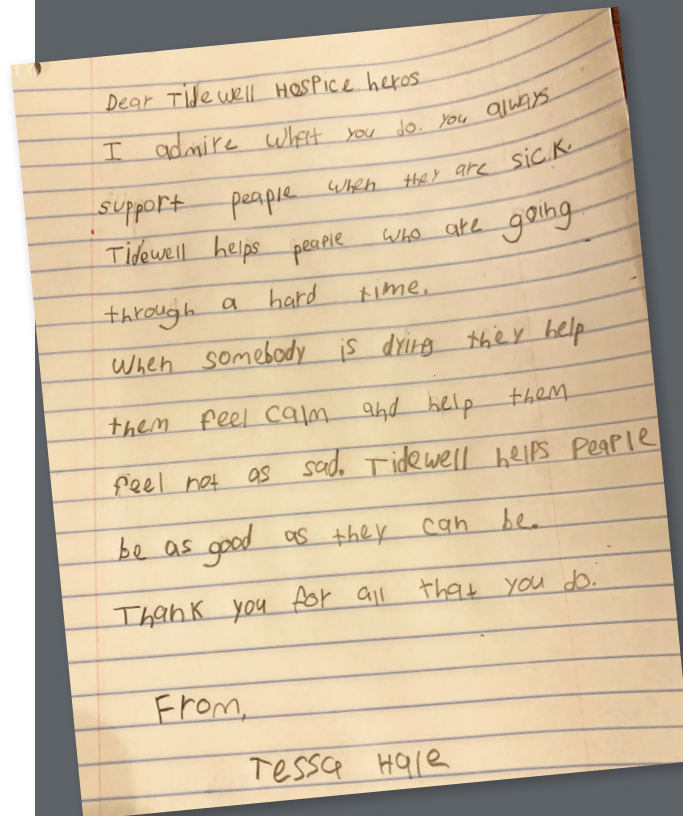 Dear Tidewell Hospice heros
I admire what you do. You always
support peaple when they are sick.
Tidewell helps peaple who are going
through a hard time.
When somebody is dying they help
them feel calm and help them
feel not as sad. Tidewell helps peaple
be as good as they can be.
Thank you for all that you do.
From,
Tessa Hale